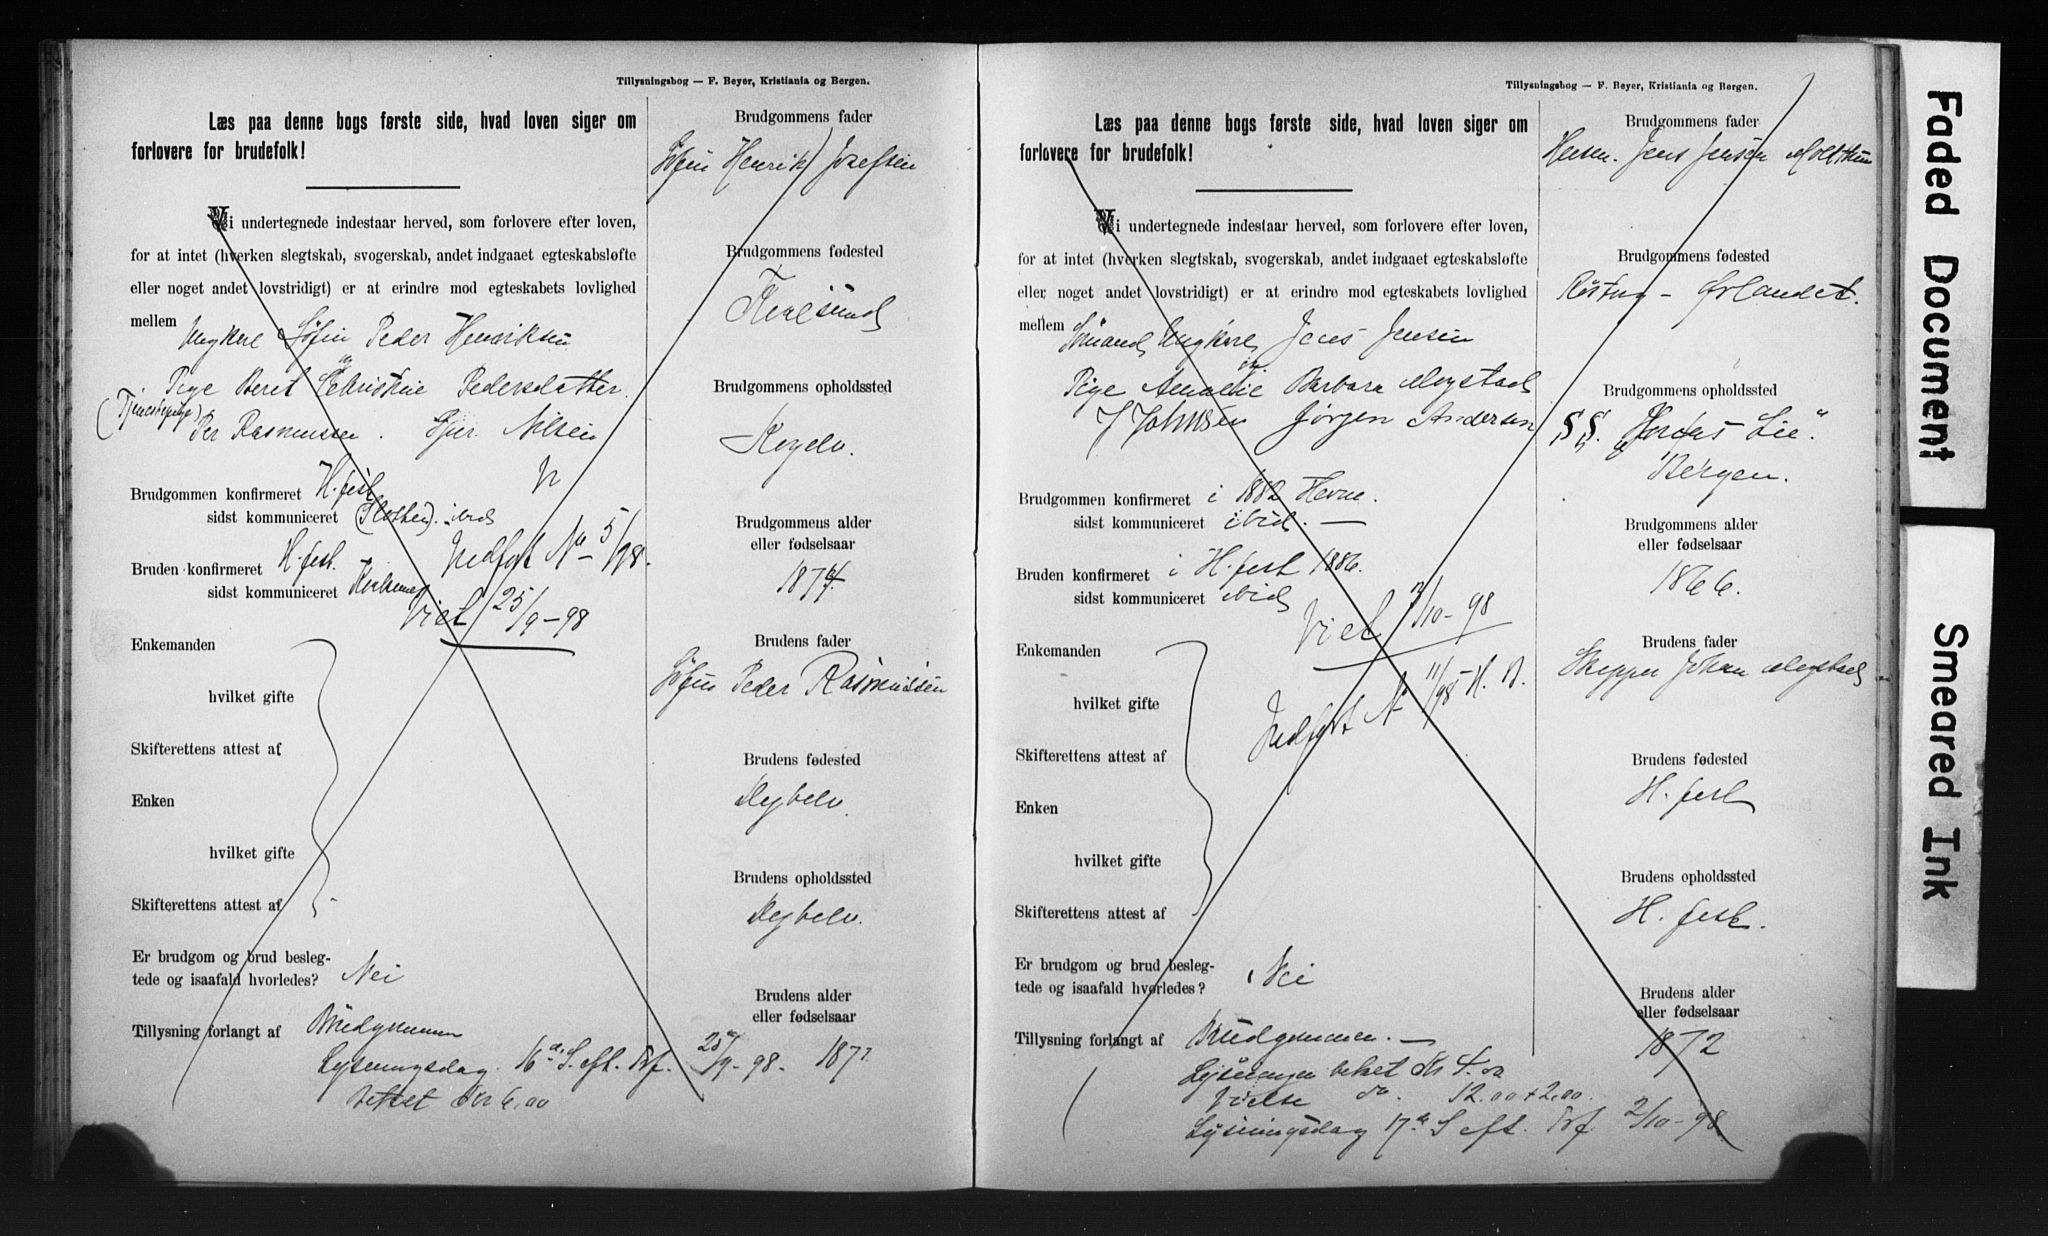 Tillysningsbog — F. Beyer, Kristiania og Bergen.
Læs paa denne bogs første side, hvad loven siger om
forlovere for brudefolk!
Vi undertegnede indestaar herved, som forlovere efter loven,
for at intet (hverken slegtskab, svogerskab, andet indgaaet egteskabsløfte
eller noget andet lovstridigt) er at erindre mod egteskabets lovlighed
mellem Ungkarl Søfin Peder Henriksen
og
Pige Beret Christine Pedersdatter.
(Tjenestepige) Per Rasmussen. Nilsen
Brudgommen konfirmeret H.fest
sidst kommuniceret ibid
Bruden konfirmeret H.fest.
sidst kommuniceret
Indført No 5/98.
Viet 25/9-98
Enkemanden
hvilket gifte
Skifterettens attest af
Enken
hvilket gifte
Skifterettens attest af
Er brudgom og brud besleg-
tede og isaafald hvorledes? Nei
Tillysning forlangt af Brudgommen
Lysningsdag 16de S. eft. Trf. 25/9-98.
betalt Kr 6,00
Brudgommens fader
Søfin Henrik Josefsen
Brudgommens fødested
Kvalsund
Brudgommens opholdssted
Brudgommens alder
eller fødselsaar
1874.
Brudens fader
Søfin Peder Rasmussen
Brudens fødested
Brudens opholdssted
Brudens alder
eller fødselsaar
187
Tillysningsbog — F. Beyer, Kristiania og Bergen.
Læs paa denne bogs første side, hvad loven siger om
forlovere for brudefolk!
Vi undertegnede indestaar herved, som forlovere efter loven,
for at intet (hverken slegtskab, svogerskab, andet indgaaet egteskabsløfte
eller noget andet lovstridigt) er at erindre mod egteskabets lovlighed
mellem Ungkarl Jens Jensen
og
Pige Amalie Barbara Mogstad
J Johnsen Jørgen Andersen
Brudgommen konfirmeret i 1882 Hevne.
sidst kommuniceret ibid. —
Bruden konfirmeret i H.fest 1886.
sidst kommuniceret ibid
Viet 2/10-98
Enkemanden
hvilket gifte
Indført No 11/98 - H. B.
Skifterettens attest af
Enken
hvilket gifte
Skifterettens attest af
Er brudgom og brud besleg-
tede og isaafald hvorledes? Nei
Tillysning forlangt af Brudgommen. —
Lysningen betalt Kr 4.00
Vielse do. 12.00 + 2.00.
Lysningsdag 17de S eft. Trf. 2/10-98.
Brudgommens fader
Jens Jensen
Brudgommens fødested
Ørlandet.
Brudgommens opholdssted
SS. "Jonas Lie"
Bergen.
Brudgommens alder
eller fødselsaar
1866.
Brudens fader
Skipper Johan Mogstad
Brudens fødested
H. fest
Brudens opholdssted
H. fest.
Brudens alder
eller fødselsaar
1872
Faded Document
Smeared Ink